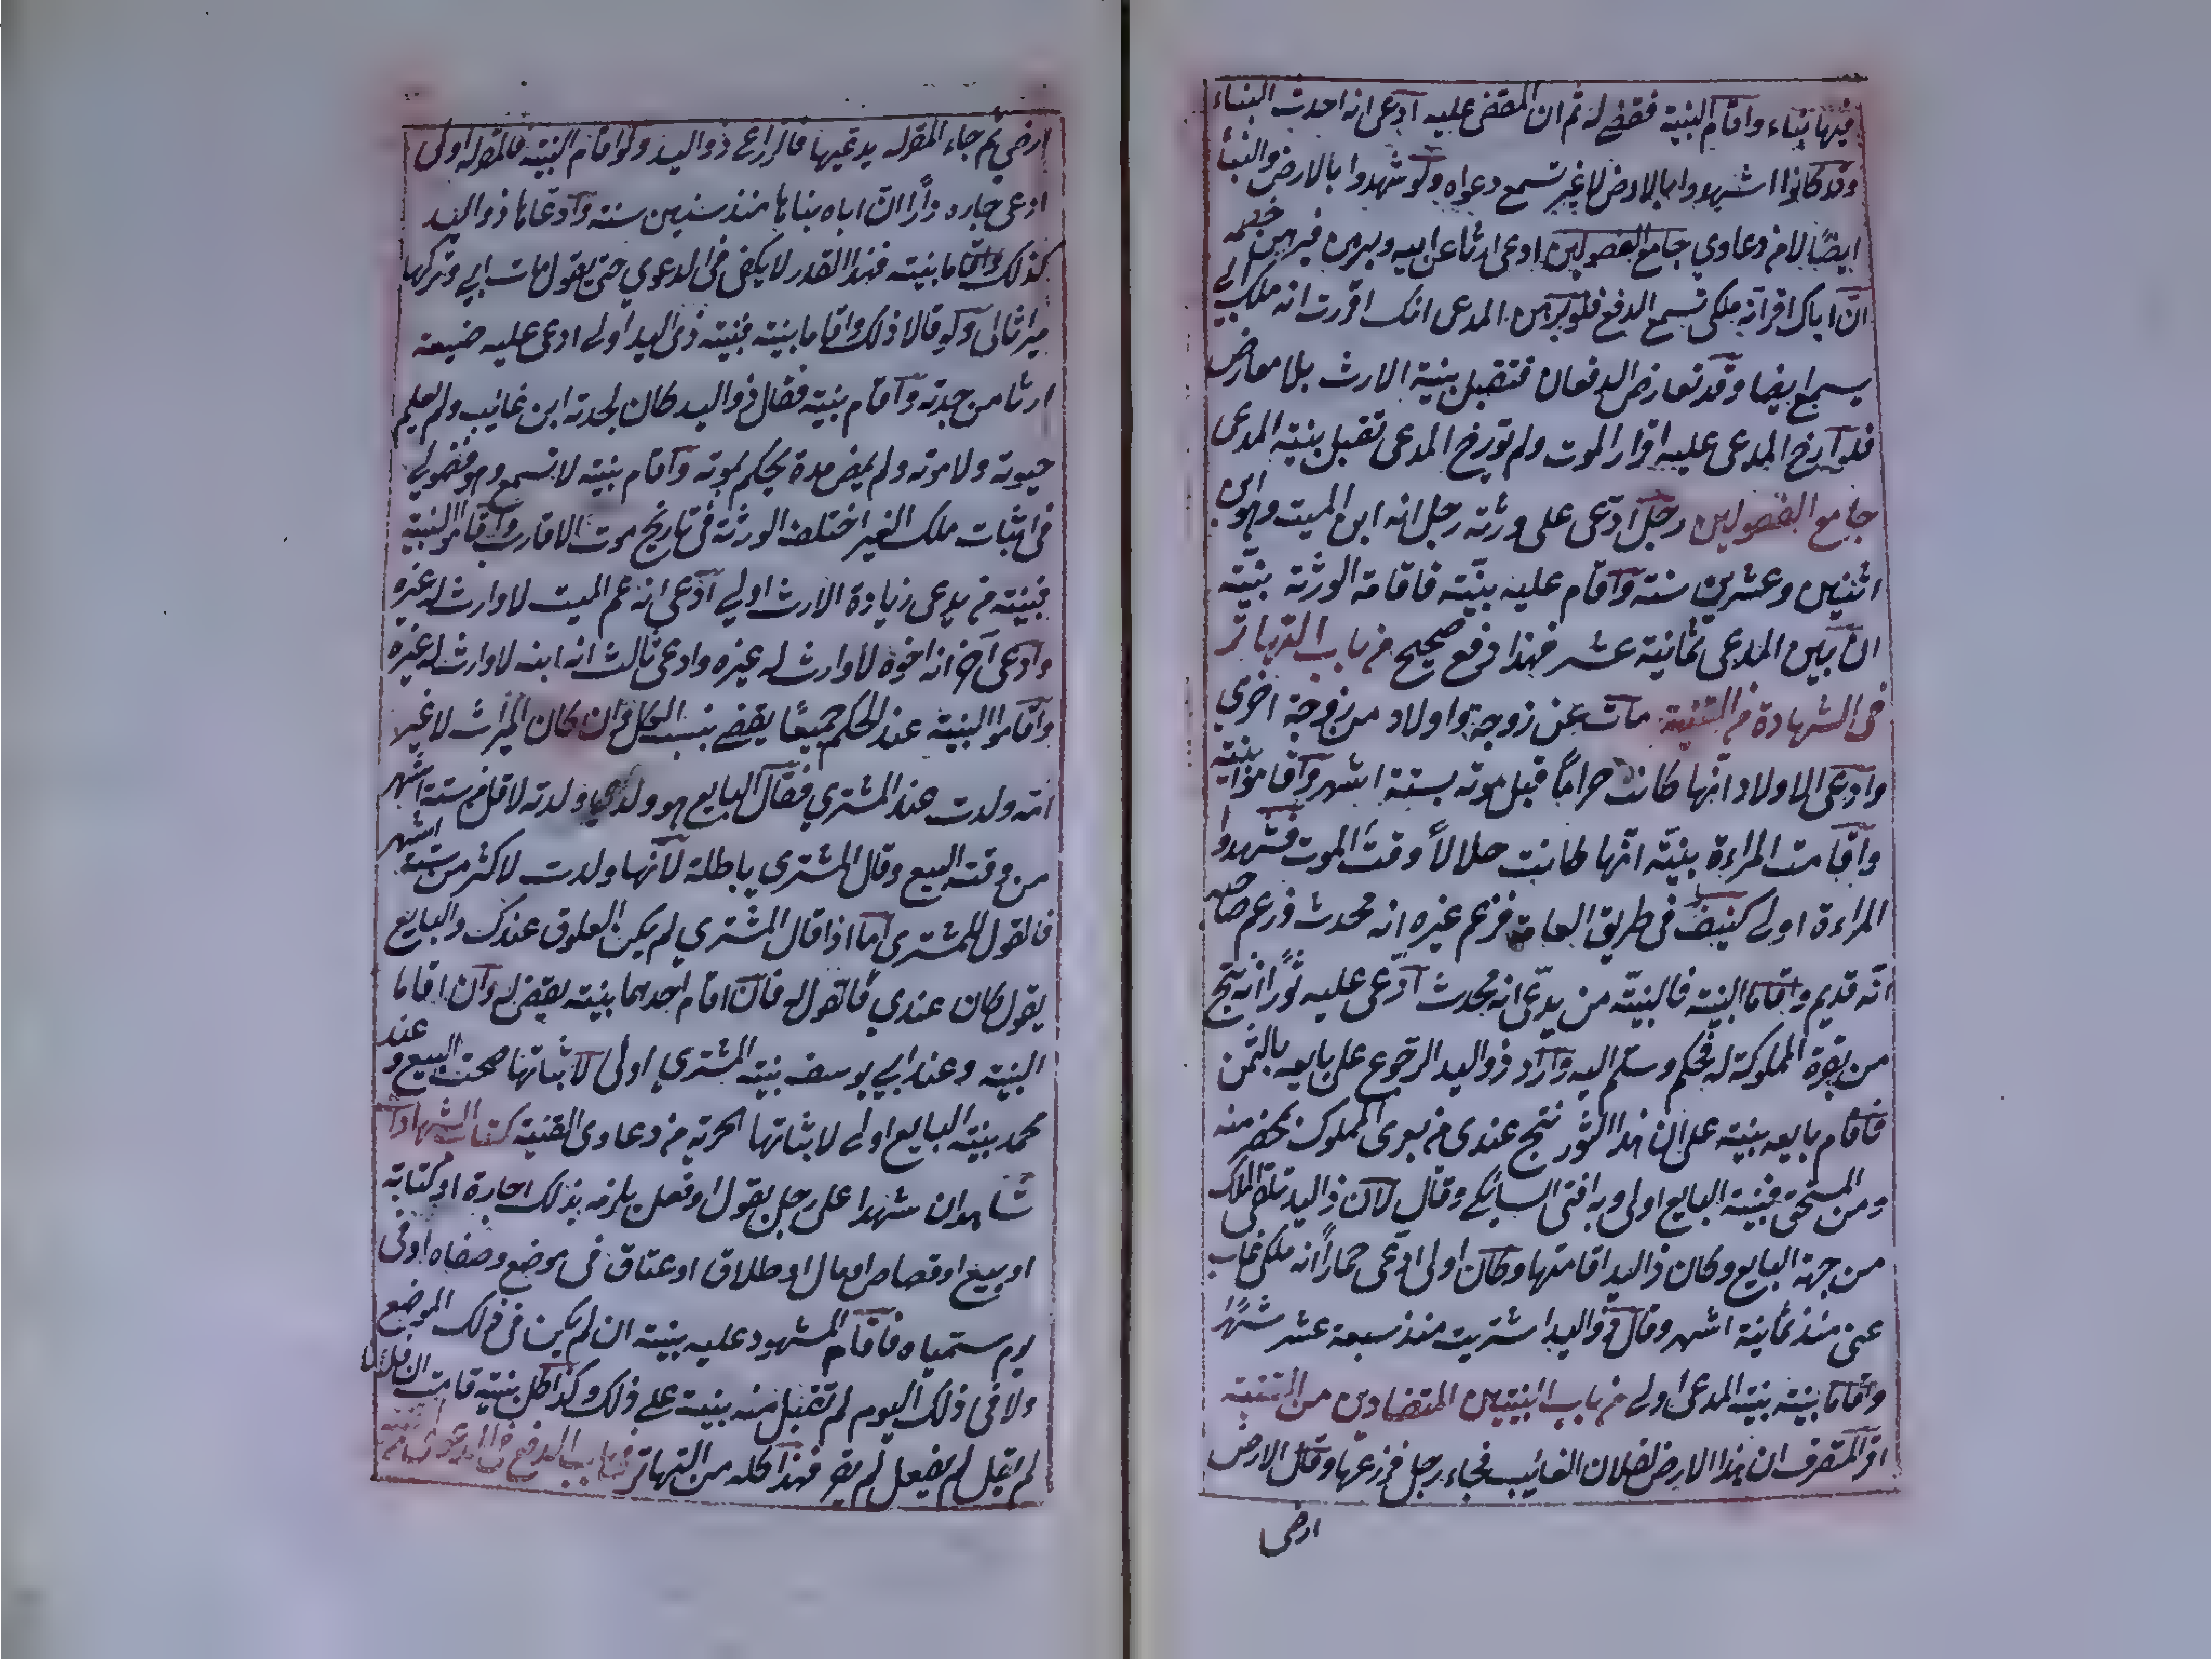 فيها بناء واقام البينة فقضى له ثم ان المقضى عليه ادعى انه احدث البناء
وقد كانوا اشهدوا بالارض لا غير تسمع دعواه ولو شهدوا بالارض والبناء
ايضا لا من دعاوي جامع الفصولين ادعى ارثا عن ابيه وبرهن فبرهن خصمه
ان اباك اقر انه ملكى تسمع الدفع فلو برهن المدعى انك اقررت انه ملك ابي
يسمع ايضا وقد تعارض الدفعان فتقبل بينة الارث بلا معارض
فلو ارخ المدعى عليه اقرار الموت ولم تورخ المدعى تقبل بينة المدعى
جامع الفصولين رجل ادعى على ورثة رجل انه ابن الميت وهو ابن
اثنين وعشرين سنة واقام عليه بينة فاقامة الورثة بينة
ان بين المدعى ثمانية عشر فهذا دفع صحيح من باب التهاتر
فى الشهادة من القنية مات عن زوجة واولاد من زوجة اخرى
وادعى الاولاد انها كانت حراما قبل موته بستة اشهر واقاموا بينة
واقامت المراءة بينة انها كانت حلالا وقت الموت فشهود
المراءة اولى كنيف فى طريق العامة فزعم غيره انه محدث وزعم صاحبه
انه قديم واقاما البينة فالبينة من يدعى انه محدث ادعى عليه ثورا انه نتج
من بقرة المملوكة له فحكم وسلم اليه واراد ذو اليد الرجوع على بايعه بالثمن
فاقام بايعه بينة على ان هذا الثور نتج عندى من بقرى المملوك بحضر منه
ومن المستحق فبينة البايع اولى وبه افتى السائكى وقال لان ذا اليد تلقى الملك
من جهة البايع وكان ذا اليد اقامتها وكان اولى ادعى حمارا انه ملكى غاب
عنى منذ ثمانية اشهر وقال ذو اليد اشتريت منذ سبعة عشر شهرا
واقاما بينة بينة المدعى اولى من باب البينتين المتضادين من القنية
اقر المتصرف ان هذا الارض لفلان الغائب فجاء رجل فزرعها وقال الارض
ارضى
ارضى ثم جاء المقر له يدعيها فالزراعى ذو اليد ولو اقام البينة فالمقر له اولى
ادعى جاره دارا ان اباه بناها منذ سنين سنة وادعاها ذو اليد
كذلك واقاما بينة فهذا القدر لا يكفى فى الدعوي حتى يقول مات ابي وتركها
ميراثا لى ولو قالا ذلك واقاما بينة فبينة ذى اليد اولى ادعى عليه ضيعة
ارثا من جدته واقام بينة فقال ذو اليد كان لجدته ابن غائب ولم يعلم
حيوته ولا موته ولم يمض مدة يحكم بموته واقام بينة لا تسمع وهو فضولى
فى اثبات ملك الغير اختلف الورثة فى تاريخ موت الاقارب واقاموا البينة
فبينة من يدعى زيادة الارث اولى ادعى انه عم الميت لا وارث له غيره
وادعى آخر انه اخوه لا وارث له غيره وادعى ثالث انه ابنه لا وارث له غيره
واقاموا البينة عند الحكم جميعا يقضى بنسب الكل وان كان الميراث لا غير
امه ولدت عند المشتري فقال البايع هو ولدى ولدته لاقل من ستة اشهر
من وقت البيع وقال المشترى باطلة لانها ولدت لاكثر من ستة اشهر
فالقول للمشترى اما اذا قال المشترى لم يكن العلوق عندك والبايع
يقول كان عندي فالقول له فان اقام احدهما بينة يقضى له وان اقاما
البينة وعند ابي يوسف بينة المشتري اولى لاثباتها صحت البيع وعند
محمد بينة البايع اولى لاثباتها الحرية من دعاوى القنية كتاب الشهادات
شاهدان شهدا على رجل بقول او فعل يلزمه بذلك اجارة او كتابة
او بيع او قصاص او مال او طلاق او عتاق فى موضع وصفاه او فى
يوم ستمياه فاقام المشهود عليه بينة ان لم يكن فى ذلك الموضع
ولا فى ذلك اليوم لم تقبل منه بينة على ذلك وكذا كل بينة قامت ان فلانا
لم يقل لم يفعل لم يقر فهذا كله من التهاتر من باب الدفع فى الدعوى